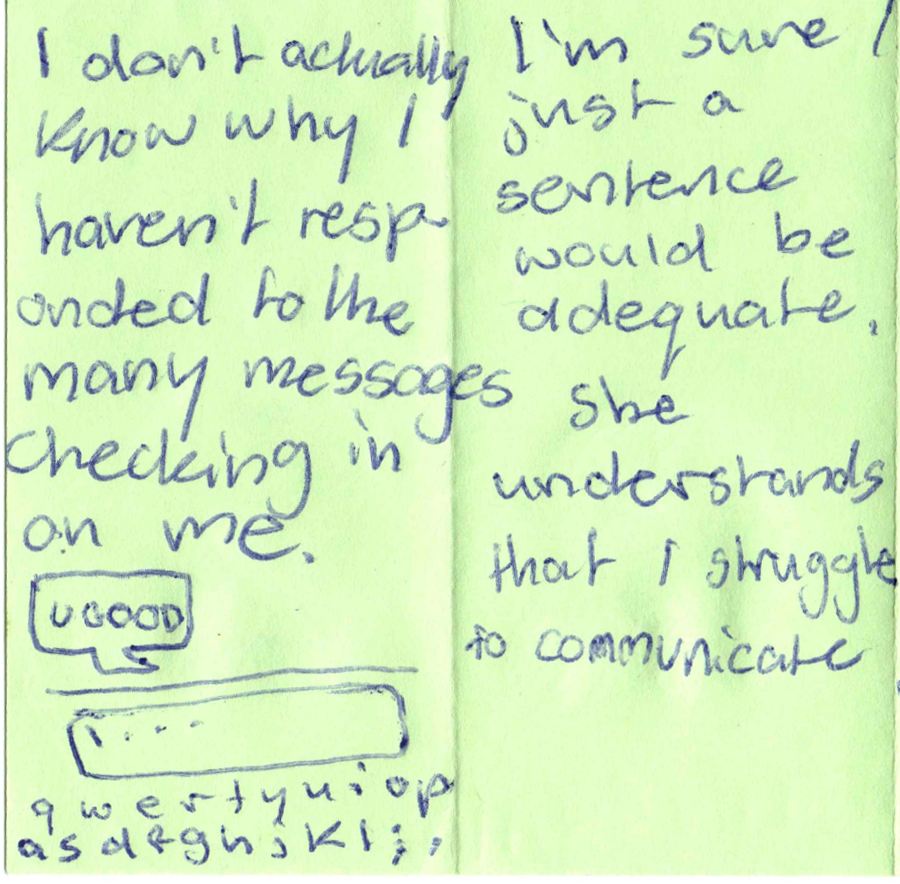 I don't actually
know why I
haven't resp
onded to the
many messages
checking in
on me.
U GOOD
....
q w e r t y u i o p
a s d f g h j k l ; ,
I'm sure
just a
sentence
would be
adequate.
she
understands
that I struggle
to communicate